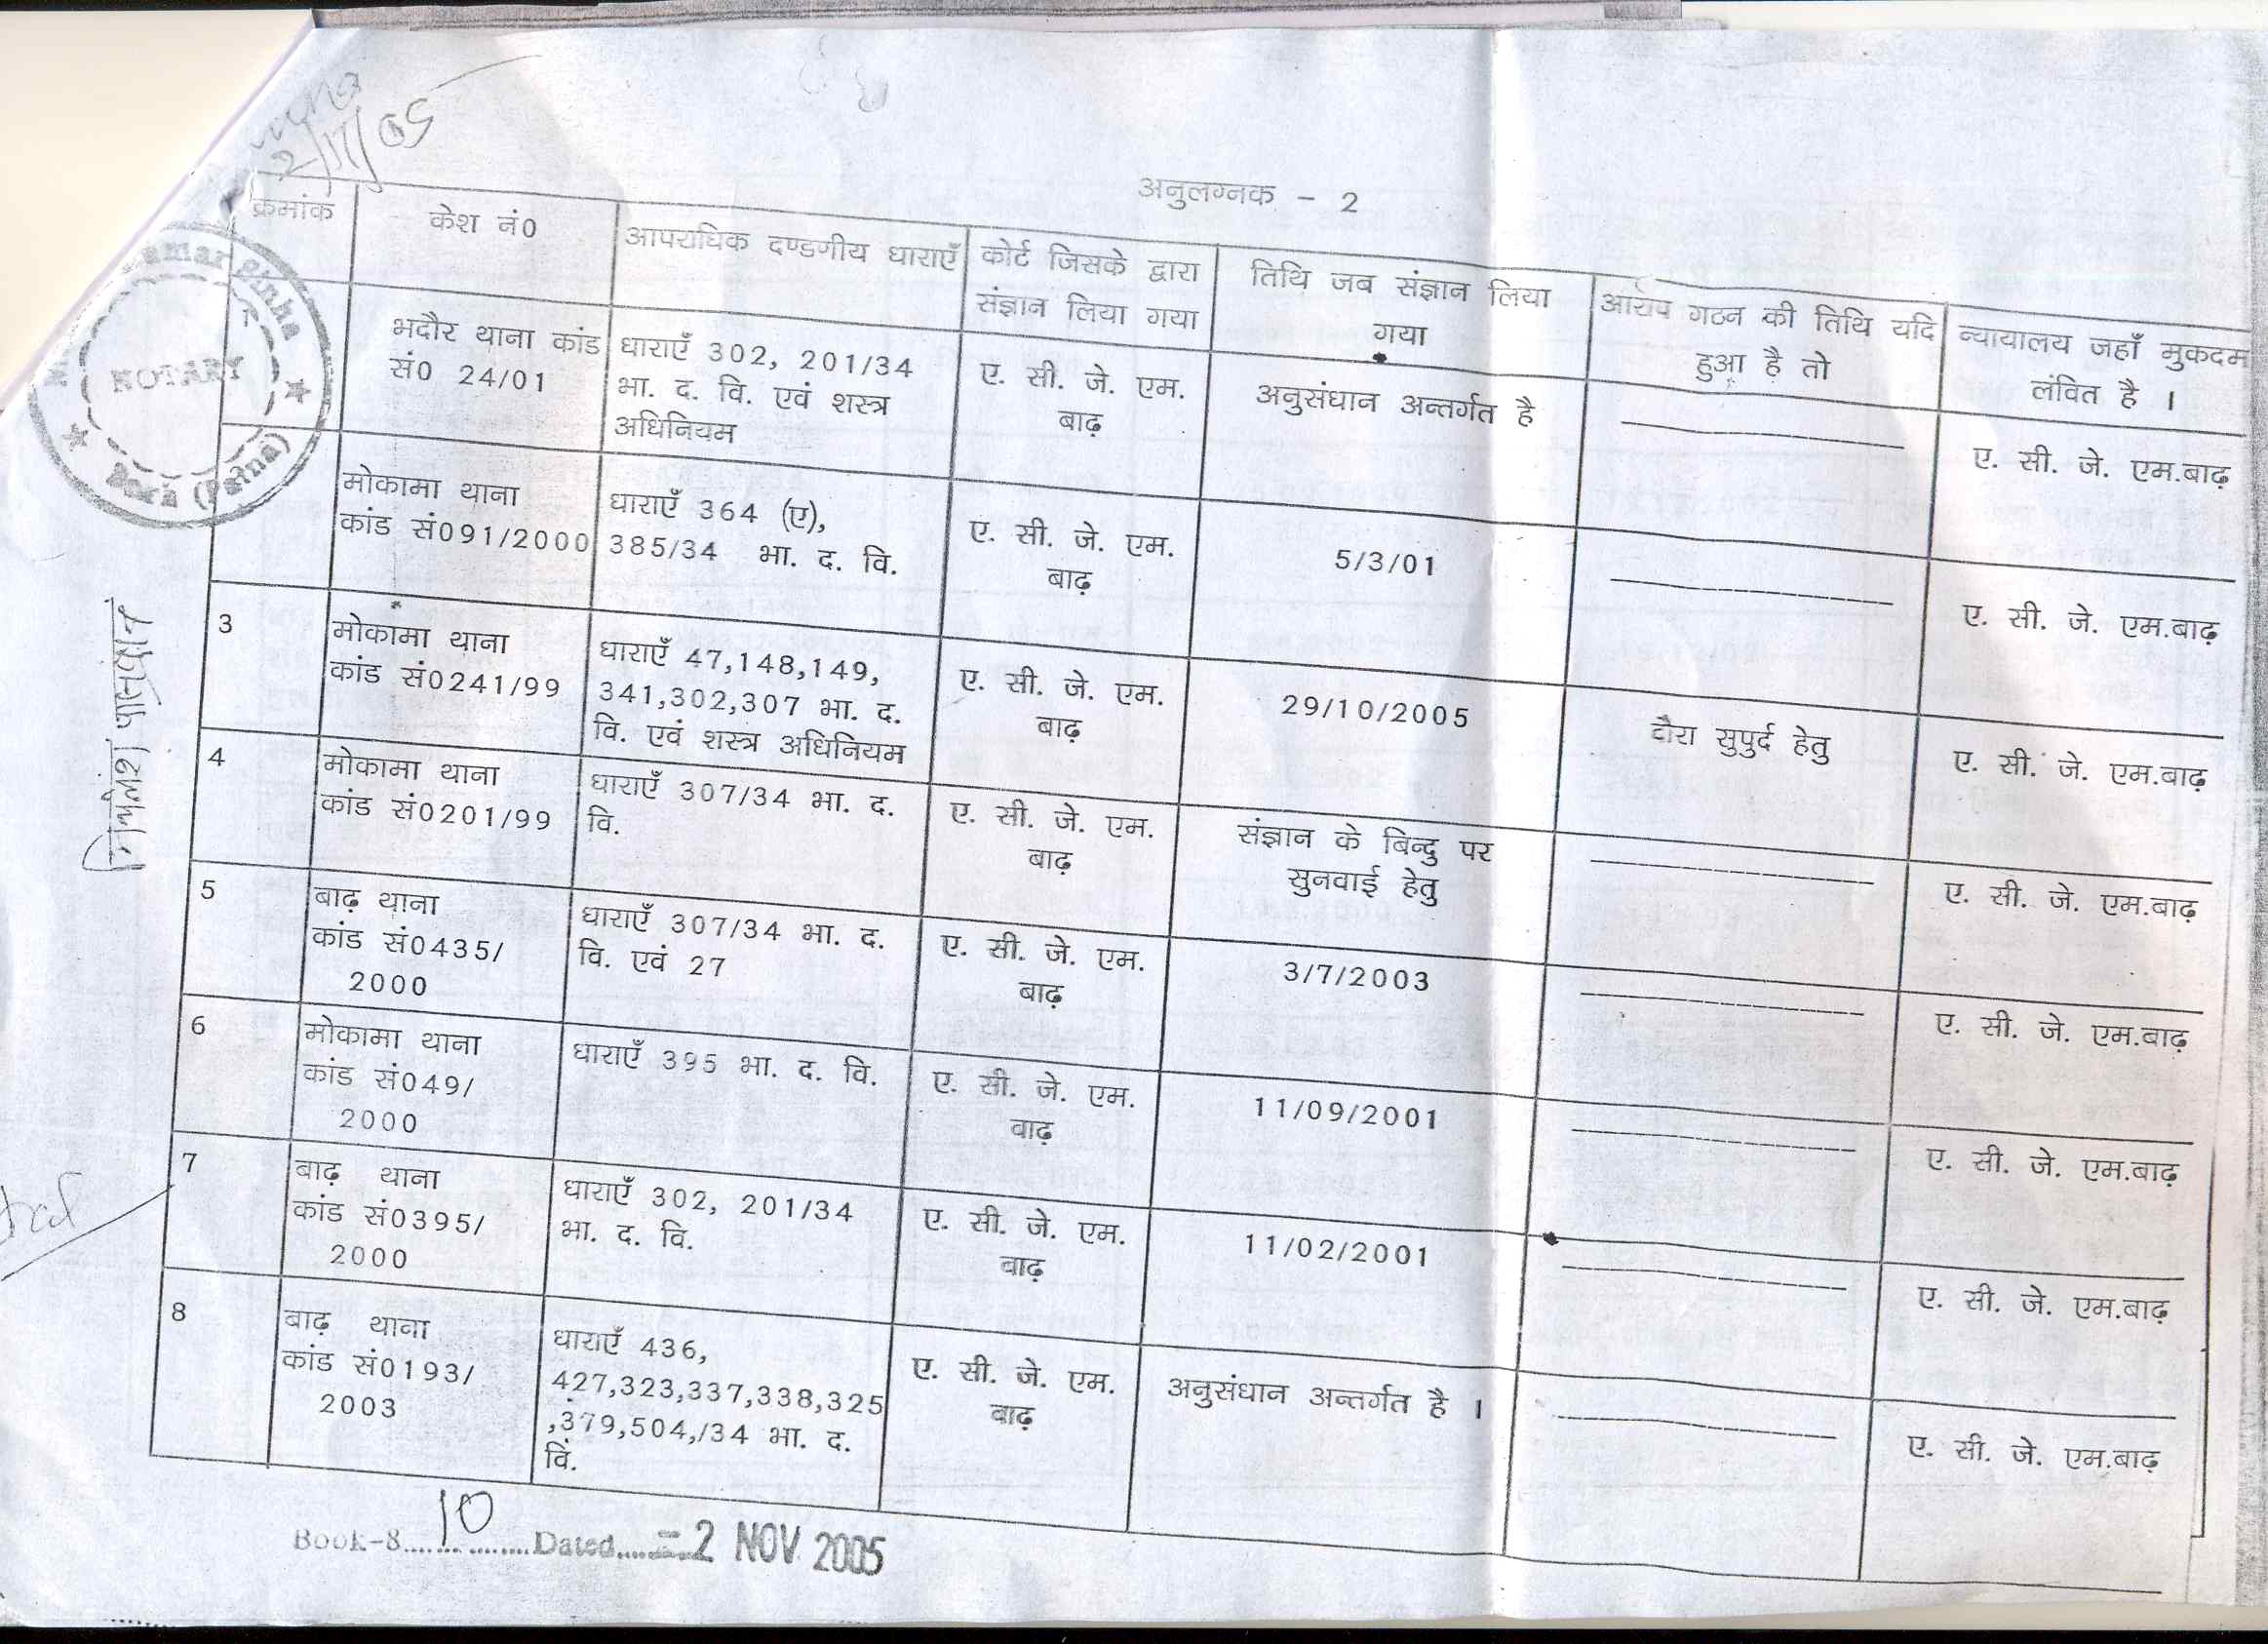 2/11/05
अनुलग्नक - 2
क्रमांक
केश नं0
आपराधिक दण्डणीय धाराएँ
कोर्ट जिसके द्वारा
संज्ञान लिया गया
तिथि जब संज्ञान लिया
गया
आरोप गठन की तिथि यदि
हुआ है तो
न्यायालय जहाँ मुकदम
लंवित है ।
भदौर थाना कांड
सं0 24/01
धाराएँ 302, 201/34
भा. द. वि. एवं शस्त्र
अधिनियम
ए. सी. जे. एम.
बाढ़
अनुसंधान अन्तर्गत है
ए. सी. जे. एम.बाढ़
मोकामा थाना
कांड सं091/2000
धाराएँ 364 (ए),
385/34 भा. द. वि.
ए. सी. जे. एम.
बाढ़
5/3/01
ए. सी. जे. एम.बाढ़
3
मोकामा थाना
कांड सं0241/99
धाराएँ 47,148,149,
341,302,307 भा. द.
वि. एवं शस्त्र अधिनियम
ए. सी. जे. एम.
बाढ़
29/10/2005
दौरा सुपुर्द हेतु
ए. सी. जे. एम.बाढ़
4
मोकामा थाना
कांड सं0201/99
धाराएँ 307/34 भा. द.
वि.
ए. सी. जे. एम.
बाढ़
संज्ञान के बिन्दु पर
सुनवाई हेतु
ए. सी. जे. एम.बाढ़
5
बाढ़ थाना
कांड सं0435/
2000
धाराएँ 307/34 भा. द.
वि. एवं 27
ए. सी. जे. एम.
बाढ़
3/7/2003
ए. सी. जे. एम.बाढ़
6
मोकामा थाना
कांड सं049/
2000
धाराएँ 395 भा. द. वि.
ए. सी. जे. एम.
बाढ़
11/09/2001
ए. सी. जे. एम.बाढ़
7
बाढ़ थाना
कांड सं0395/
2000
धाराएँ 302, 201/34
भा. द. वि.
ए. सी. जे. एम.
बाढ़
11/02/2001
ए. सी. जे. एम.बाढ़
8
बाढ़ थाना
कांड सं0193/
2003
धाराएँ 436,
427,323,337,338,325
,379,504,/34 भा. द.
वि.
ए. सी. जे. एम.
बाढ़
अनुसंधान अन्तर्गत है ।
ए. सी. जे. एम.बाढ़
NOTARY
Sinha
(Patna)
Book-8....10........Dated.....-2 NOV 2005